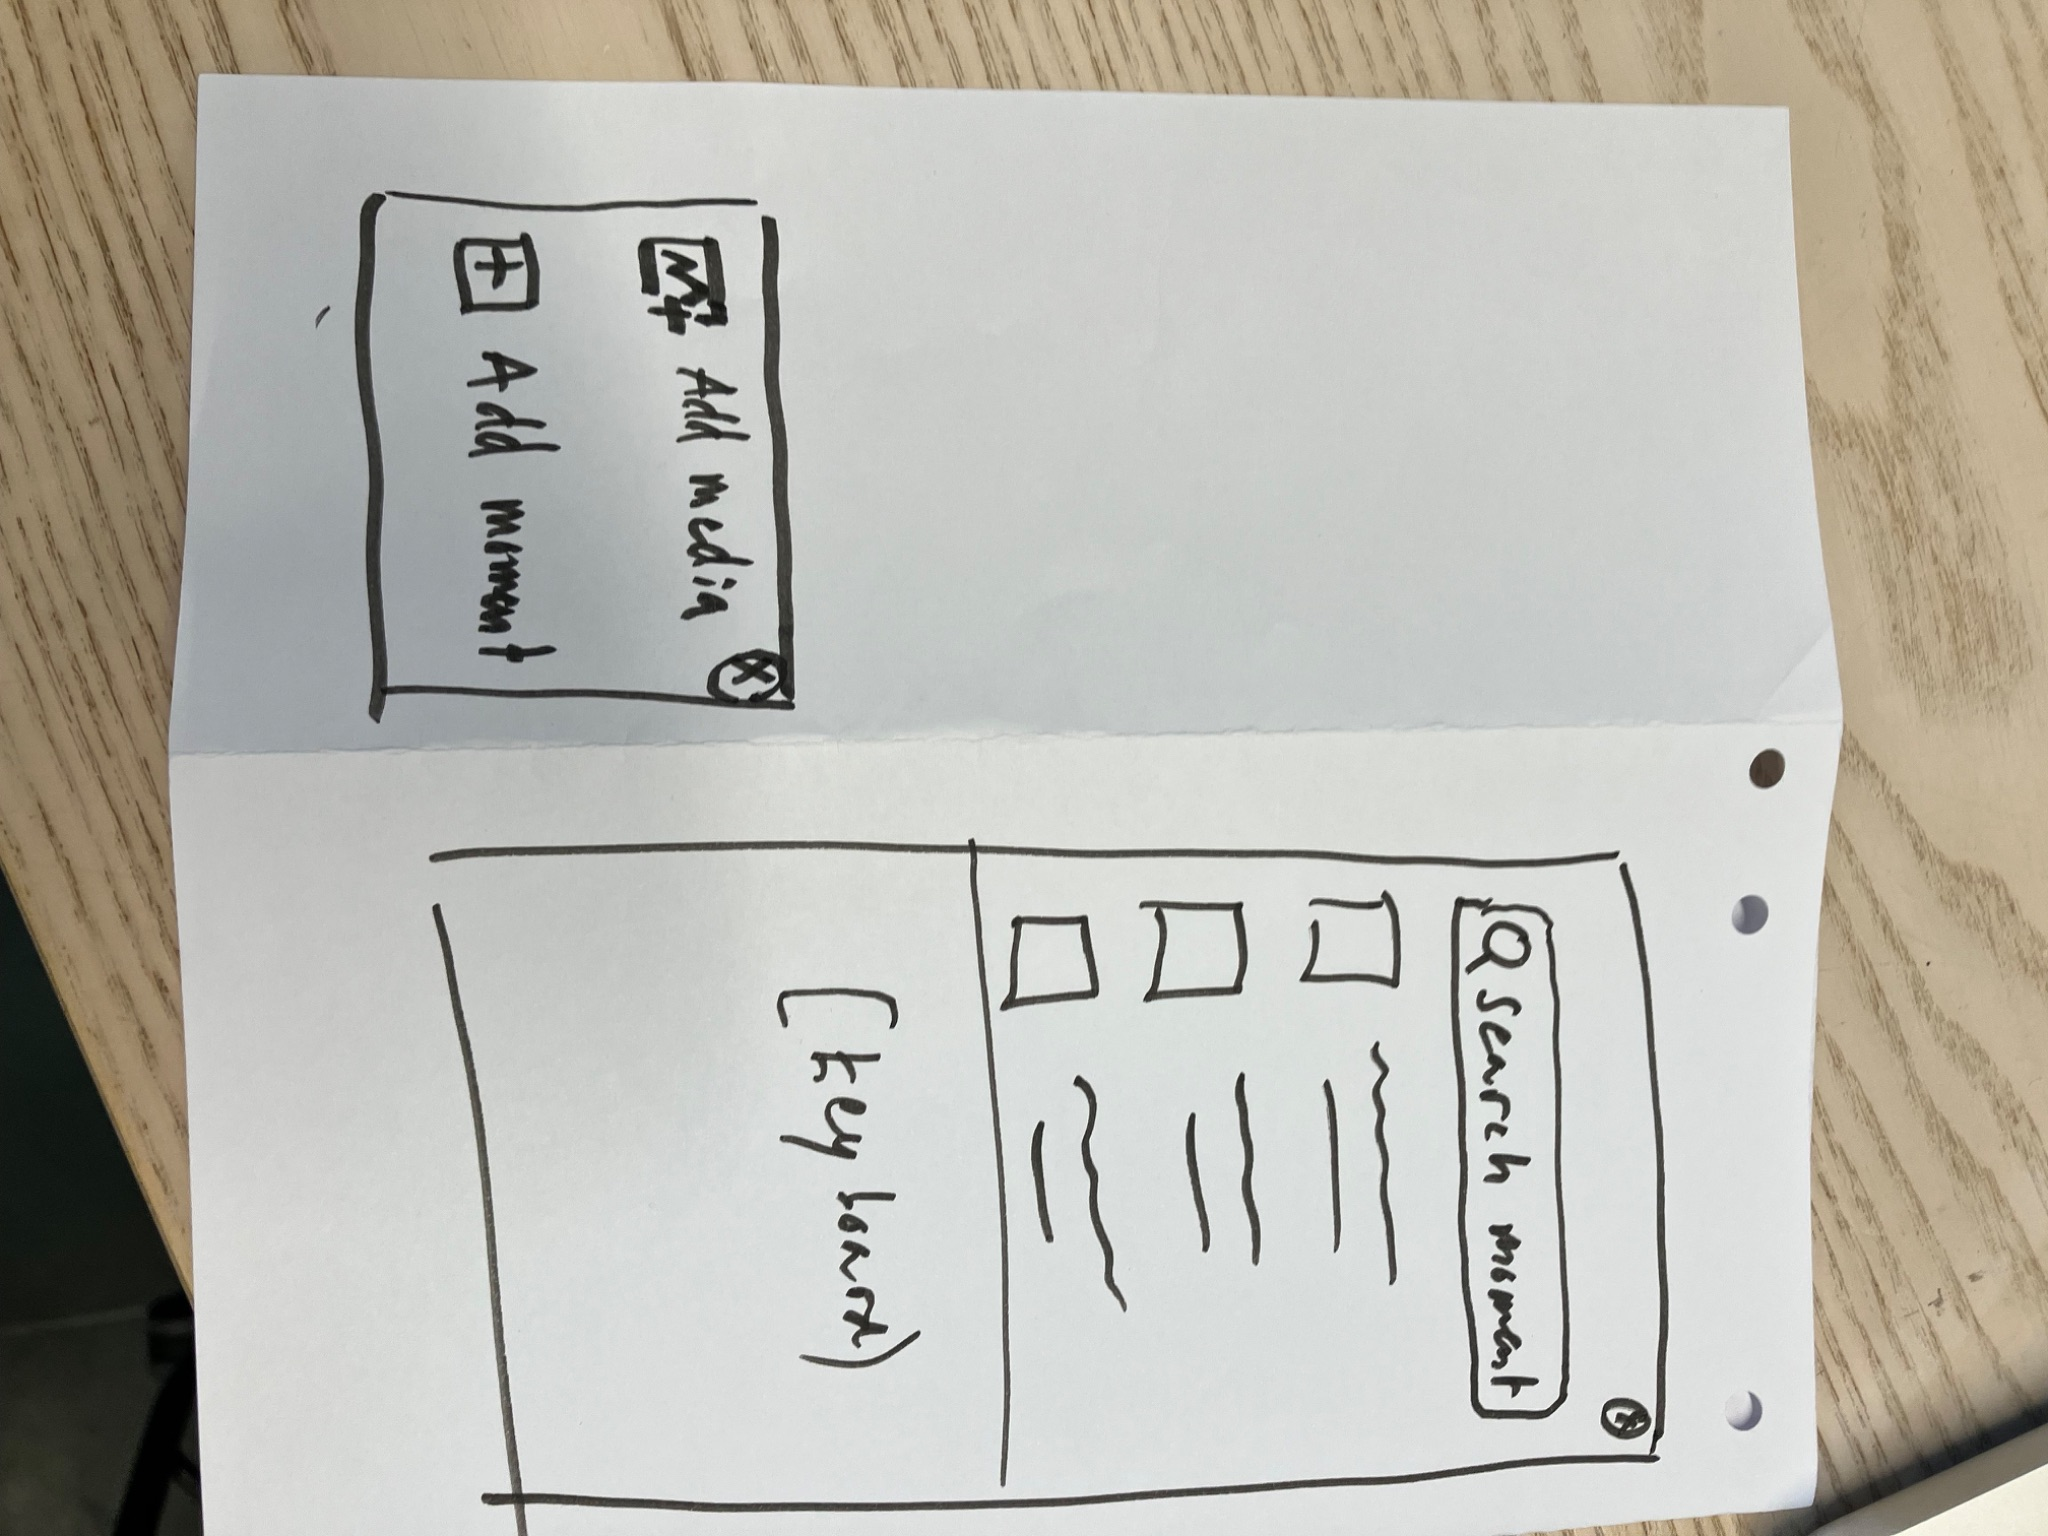 Add media
Add moment
Search moment
[keyboard)